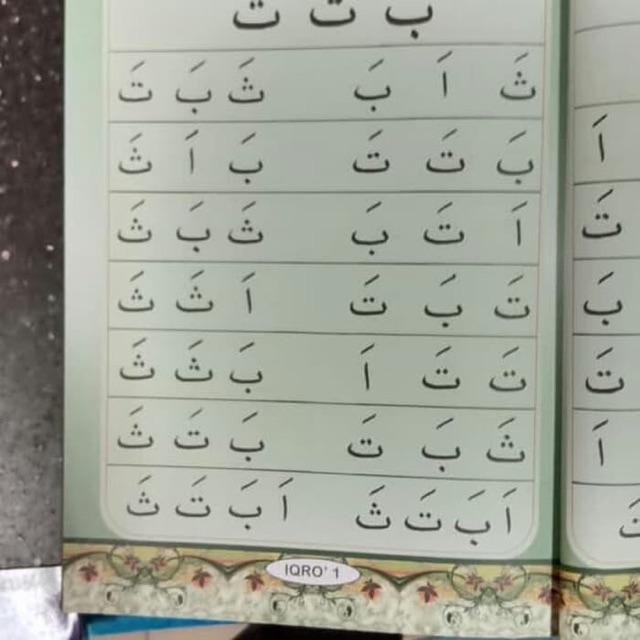 ب ت
ثَ اَ بَ ثَ بَ تَ
بَ تَ تَ بَ اَ ثَ
اَ تَ بَ ثَ بَ ثَ
تَ بَ تَ اَ ثَ ثَ
تَ تَ اَ بَ ثَ ثَ
ثَ بَ تَ بَ تَ ثَ
اَ بَ تَ ثَ اَ بَ تَ ثَ
IQRO' 1
اَ
تَ
بَ
تَ
اَ